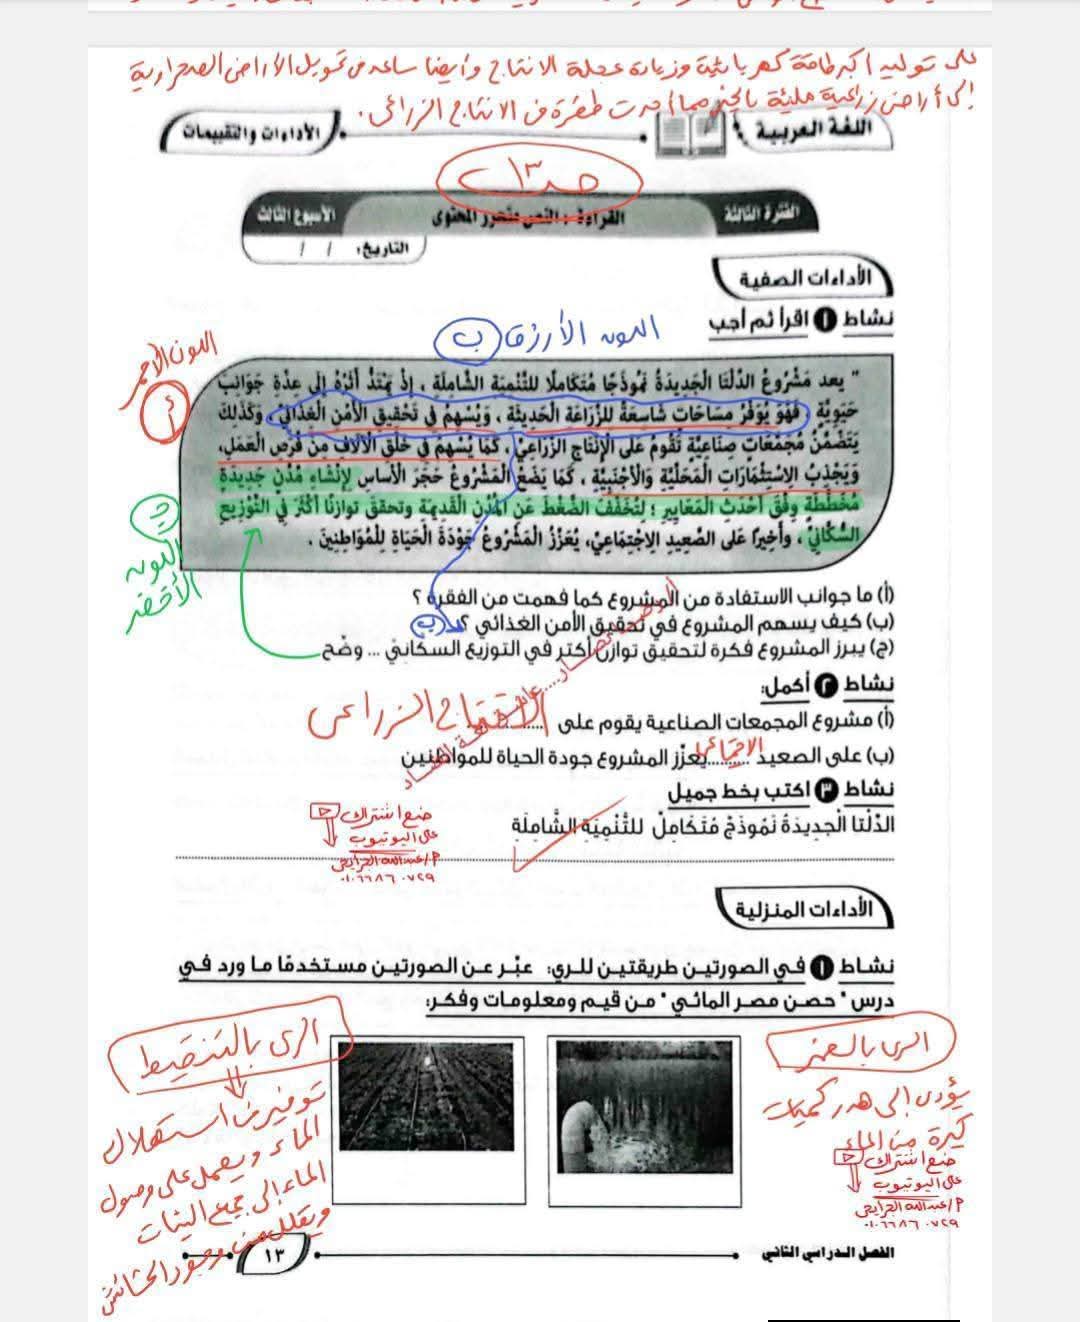 على توليد أكبر طاقة كهربائية وزيادة عجلة الانتاج وأيضا ساعد فى تحويل الأراضى الصحراوية
إلى أراضى زراعية مليئة بالخير مما أحدث طفرة فى الانتاج الزراعى .
اللغة العربية
الأداءات والتقييمات
صـ ١٣
الفترة الثالثة
القراءة : النص متحرر المحتوى
الأسبوع الثالث
التاريخ: / /
الأداءات الصفية
نشاط ١ اقرأ ثم أجب
اللون الأزرق (ب)
اللون الأحمر
أ
" يعد مَشْرُوعُ الدِّلْتَا الْجَدِيدَةُ نَمُوذَجًا مُتَكَامِلًا للتَّنْمِيَة الشَّامِلَةِ ، إِذْ يَمْتَدُّ أَثَرُهُ إِلَى عِدَّةِ جَوَانِبَ
حَيَوِيَّةٍ ، فَهُوَ يُوَفِّرُ مِسَاحَاتٍ شَاسِعَةً لِلزِّرَاعَةِ الْحَدِيثَةِ ، وَيُسْهِمُ فِي تَحْقِيقِ الْأَمْنِ الْغِذَائِيِّ ، وَكَذَلِكَ
يَتَضَمَّنُ مُجَمَّعَاتٍ صِنَاعِيَّةً تَقُومُ عَلَى الْإِنْتَاجِ الزِّرَاعِيِّ ، كَمَا يُسْهِمُ فِي خَلْقِ الْآلَافِ مِنْ فُرَصِ الْعَمَلِ،
وَيَجْذِبُ الِاسْتِثْمَارَاتِ الْمَحَلِّيَّةَ وَالْأَجْنَبِيَّةَ ، كَمَا يَضَعُ الْمَشْرُوعُ حَجَرَ الْأَسَاسِ لِإِنْشَاءِ مُدُنٍ جَدِيدَةٍ
مُخَطَّطَةٍ وَفْقَ أَحْدَثِ الْمَعَايِيرِ ؛ لِتُخَفِّفَ الضَّغْطَ عَنِ الْمُدُنِ الْقَدِيمَةِ وتحقق توازنًا أَكْثَرَ فِي التَّوْزِيعِ
السُّكَّانِيِّ ، وأخيرًا عَلَى الصَّعِيدِ الِاجْتِمَاعِيِّ، يُعَزِّزُ الْمَشْرُوعُ جَوْدَةَ الْحَيَاةِ لِلْمُوَاطِنِينَ .
ج
اللون
الأخضر
(أ) ما جوانب الاستفادة من المشروع كما فهمت من الفقرة ؟
(ب) كيف يسهم المشروع في تحقيق الأمن الغذائي ؟ ب
(ج) يبرز المشروع فكرة لتحقيق توازن أكثر في التوزيع السكاني ... وضح
نشاط ٢ أكمل:
(أ) مشروع المجمعات الصناعية يقوم على ............ الانتاج الزراعى
(ب) على الصعيد ......... الاجتماعى يعزّز المشروع جودة الحياة للمواطنين
نشاط ٣ اكتب بخط جميل
الدِّلْتَا الْجَدِيدَةُ نَمُوذَجٌ مُتَكَامِلٌ للتَّنْمِيَةِ الشَّامِلَةِ
ضع اشتراك
على اليوتيوب
م/عبدالله الجرايحى
٠١٠٦٦٨٦٠٧٢٩
الأداءات المنزلية
نشاط ١ في الصورتين طريقتين للري: عبّر عن الصورتين مستخدمًا ما ورد في
درس " حصن مصر المائي " من قيم ومعلومات وفكر:
الرى بالغمر
يؤدى إلى هدر كميات
كبيرة من الماء
ضع اشتراك
على اليوتيوب
م/عبدالله الجرايحى
٠١٠٦٦٨٦٠٧٢٩
الرى بالتنقيط
توفير فى استهلاك
الماء ويعمل على وصول
الماء إلى جميع النبات
ويقلل من وجود الحشائش
الفصل الدراسي الثاني
١٣